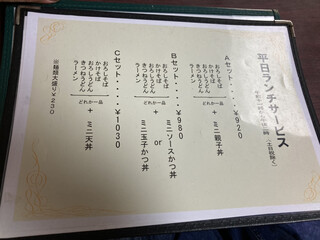 平日ランチサービス
(土日祝除く)
Aセット・・・・¥920
おろしそば
かけそば
おろしうどん
きつねうどん
ラーメン
どれか一品
+
ミニ親子丼
Bセット・・・・¥980
おろしそば
かけそば
おろしうどん
きつねうどん
ラーメン
どれか一品
+
ミニソースかつ丼
or
ミニ玉子かつ丼
Cセット・・・・¥1030
おろしそば
かけそば
おろしうどん
きつねうどん
ラーメン
どれか一品
+
ミニ天丼
※麺類大盛り¥200